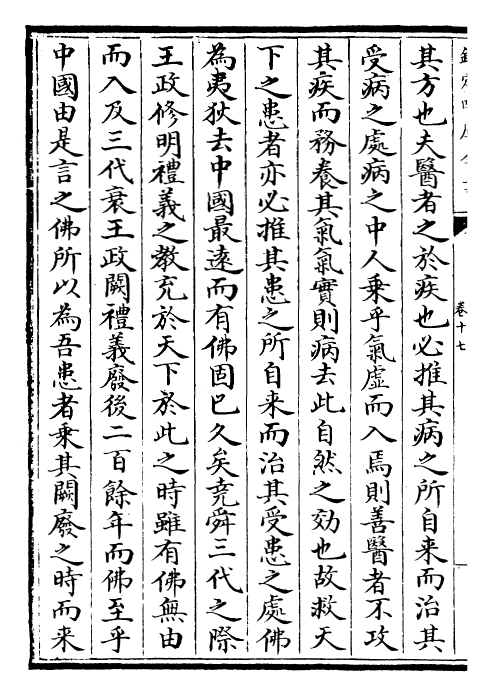 其方也夫醫者之於疾也必推其病之所自来而治其
受病之處病之中人乗乎氣虛而入焉則善醫者不攻
其疾而務養其氣氣實則病去此自然之効也故救天
下之患者亦必推其患之所自来而治其受患之處佛
為夷狄去中國最逺而有佛固已久矣堯舜三代之際
王政修明禮義之教充於天下於此之時雖有佛無由
而入及三代衰王政闕禮義廢後二百餘年而佛至乎
中國由是言之佛所以為吾患者乗其闕廢之時而来
卷十七